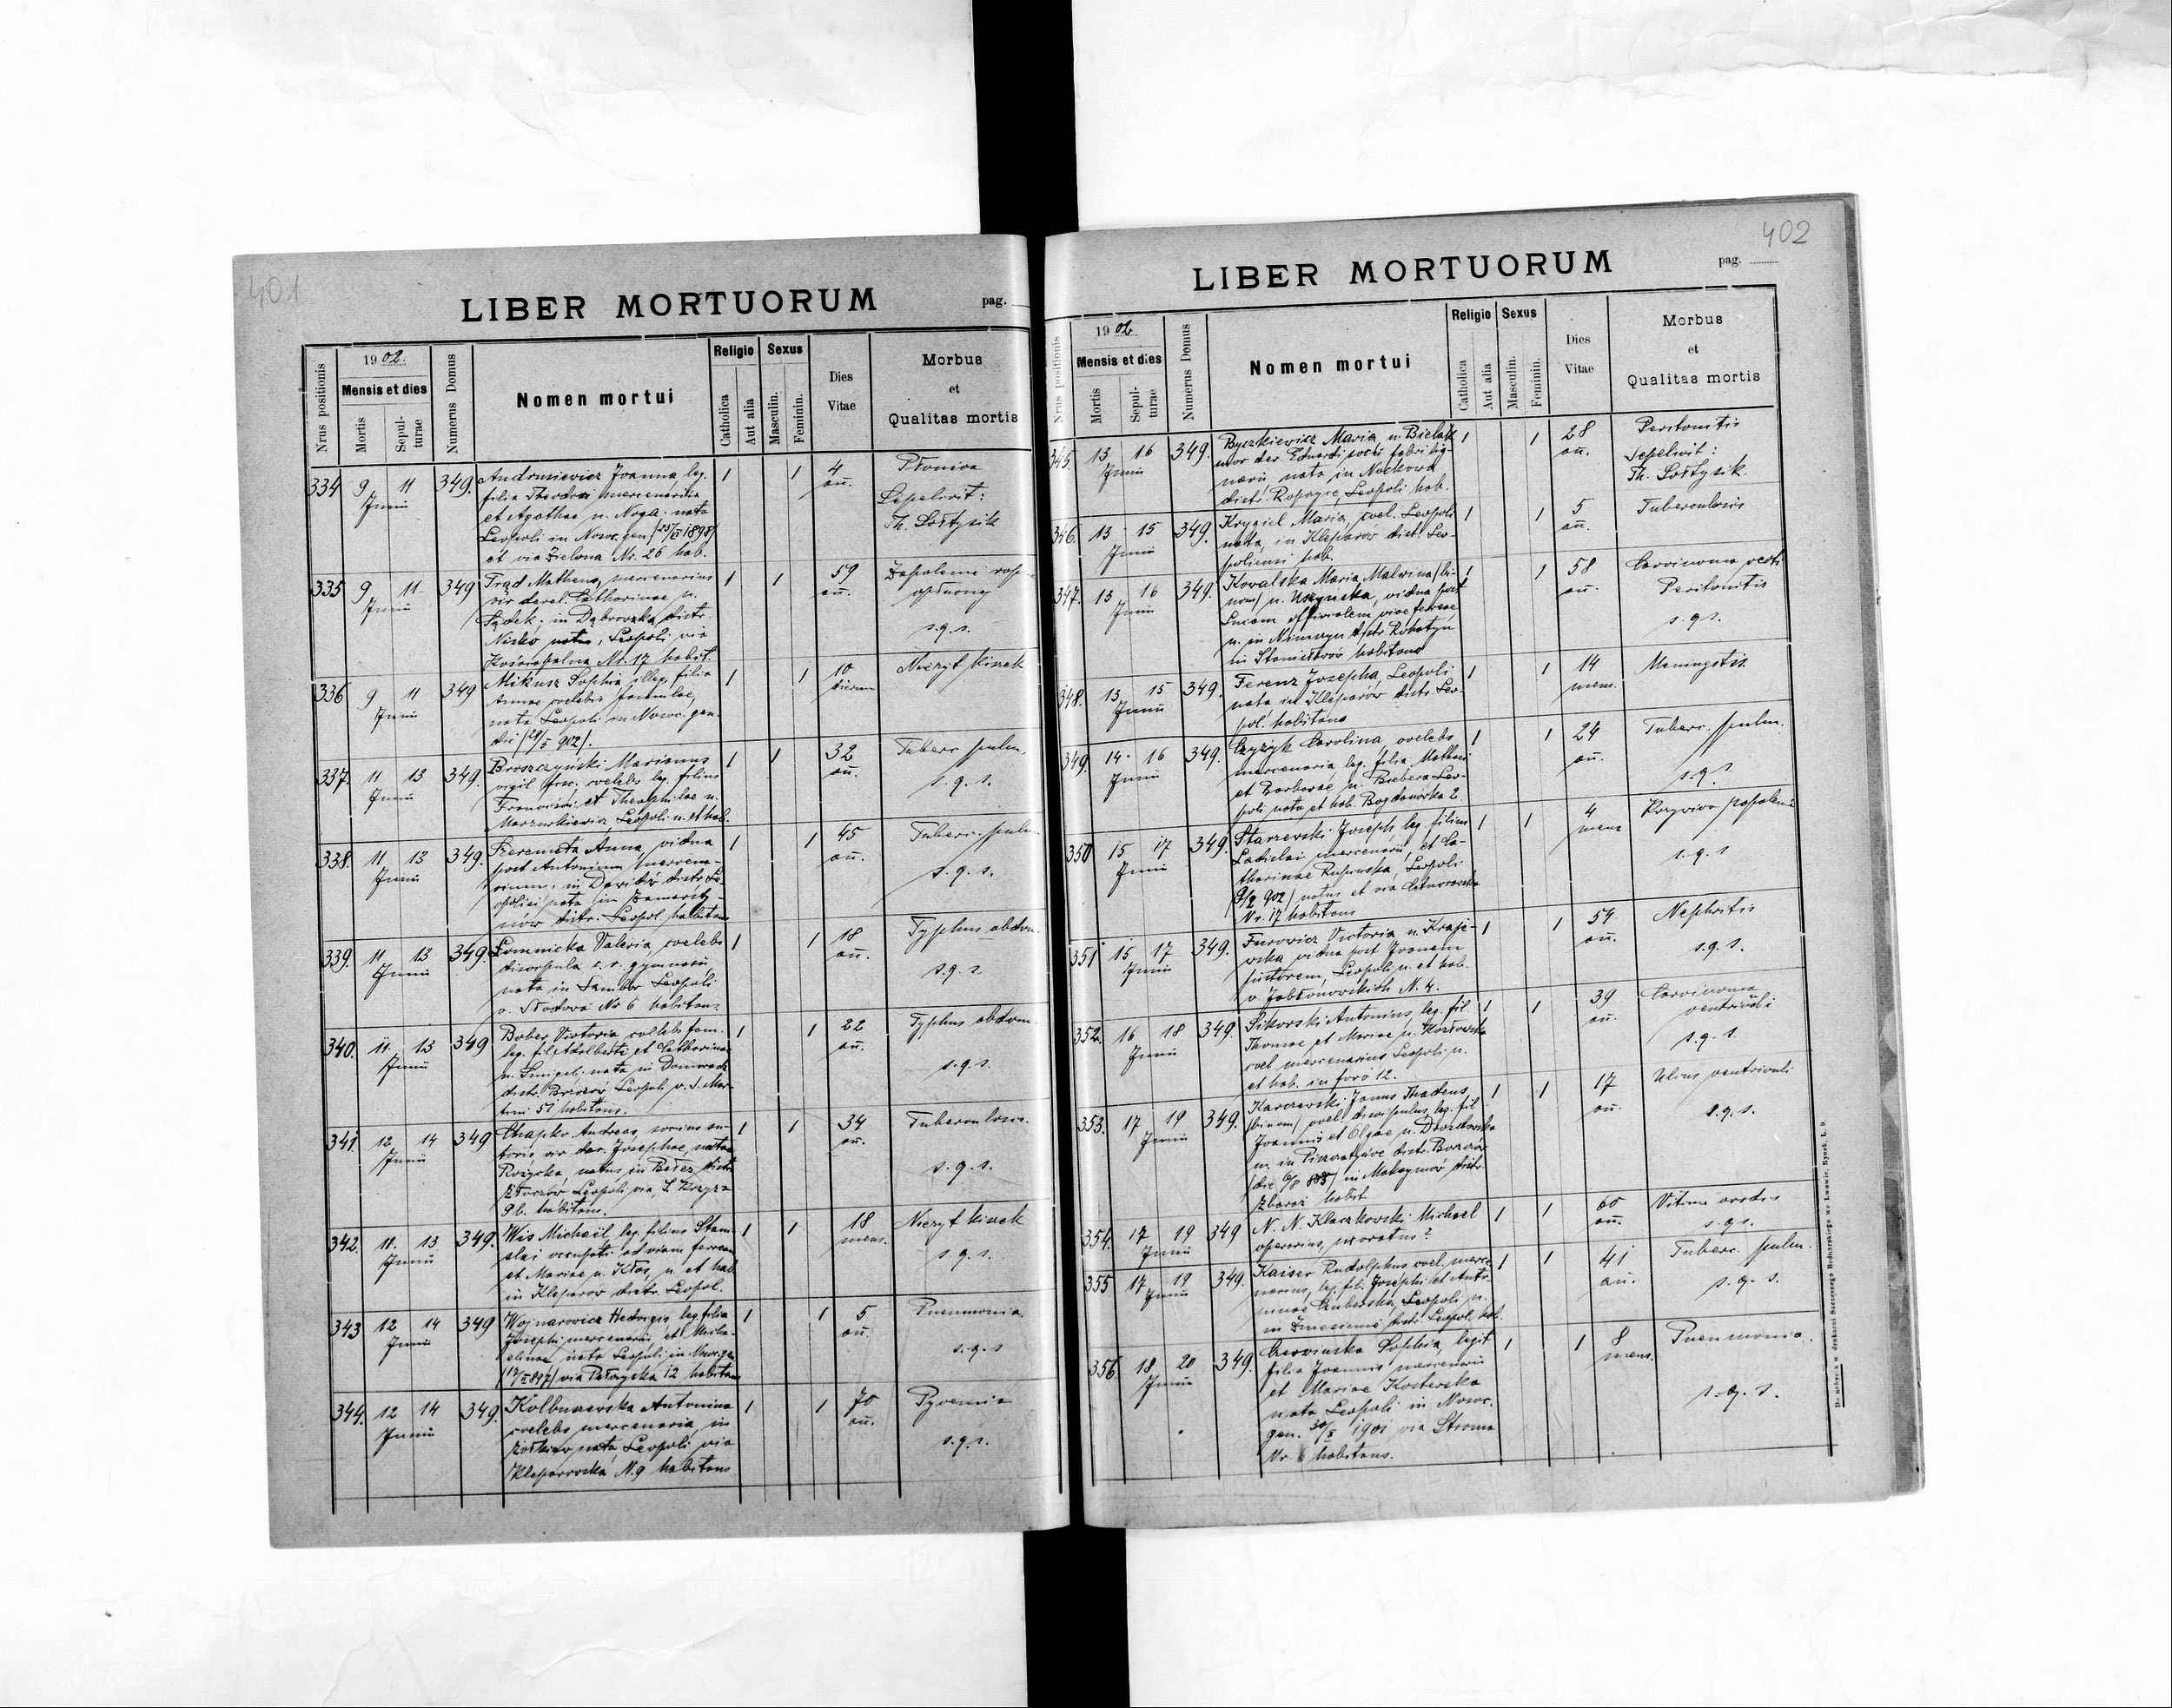 401
LIBER MORTUORUM
pag.
Nrus positionis
1902.
Mensis et dies
Mortis
Sepulturae
Numerus Domus
Nomen mortui
Religio
Catholica
Aut alia
Sexus
Masculin.
Feminin.
Dies
Vitae
Morbus
et
Qualitas mortis
334 9 11 Junii 349. Andrusiewicz Joanna leg. 1 1 4 an. Płonica
filia Theodori mercenarii Sepelivit:
et Agathae n. Noga. nata Th. Sołtysik
Leopoli in Nosoc. gen.
et via Zielona Nr. 26 hab.
335 9 11 Junii 349 Trąd Matheus, mercenarius 1 1 59 an. Zapalenie
vir derel. Catharinae n. opłucnej
Sądek, in Dąbrowka distr. s.q.s.
Nisko natus, Leopoli via
Nr. 17 habit.
336 9 11 Junii 349 Mikusz Sophia illeg. filia 1 1 10 dierum Nieżyt kiszek
Annae coelebis famulae,
nata Leopoli in Nosoc. gen.
die (29/5 902).
337. 11 13 Junii 349. Broszczyński Marianus 1 1 32 an. Tuberc. pulm.
coelebs leg. filius s.q.s.
Francisci et Theophilae n.
Mazurkiewicz Leopoli n. et hab.
338. 11 13 Junii 349. Anna, vidua 1 1 45 an. Tuberc. pulm.
post Antonium mercena- s.q.s.
rium, in distr. Le-
nata in Zamarsty-
nów distr. Leopol. habitans
339. 11 13 Junii 349. Łomnicka Valeria, coelebs 1 1 18 an. Typhus abdom.
discipula c. r. gymnasii s.q.s.
nata in Sambor Leopoli
Nr 6 habitans.
340. 11 13 Junii 349 Bober Victoria coelebs fam. 1 1 22 an. Typhus abdom.
leg. fil. Adalberti et Catharinae s.q.s.
n. Śmigel. nata in Domaradz
distr. Brzozów Leopoli v. S. Mar-
tini 51 habitans.
341. 12 14 Junii 349 Chapko Andreas, socius su- 1 1 34 an. Tuberculosis.
toris vir der. Josephae, natae s.q.s.
Rożycka, natus in distr.
Złoczów Leopoli via S. Krzyża
9 b. habitans.
342. 11 13 Junii 349. Wis Michael, leg. filius Stani- 1 1 18 mens. Nieżyt kiszek
slai occupati ad viam ferream s.q.s.
et Mariae n. Kłos, n. et hab.
in Kleparów distr. Leopol.
343 12 14 Junii 349 Wojnarowicz Hedvigis leg. filia 1 1 5 an. Pneumonia
Josephi mercenarii et Micha- s.q.s
elinae nata Leopoli in Nosoc. gen.
via 12 habitans
344. 12 14 Junii 349. Kolbuszewska Antonina 1 1 70 an. Pyaemia
coelebs mercenaria, in s.q.s.
Żółkiew nata, Leopoli via
Kleparowska N. 9 habitans
402
LIBER MORTUORUM
pag.
Nrus positionis
1902
Mensis et dies
Mortis
Sepulturae
Numerus Domus
Nomen mortui
Religio
Catholica
Aut alia
Sexus
Masculin.
Feminin.
Dies
Vitae
Morbus
et
Qualitas mortis
345. 13 16 Junii 349. Byczkiewicz Maria n. Bielak 1 1 28 an. Peritonitis
uxor der. Eduardi socii fabri lig- Sepelivit:
narii nata in Nockowa Th. Sołtysik.
distr. Ropczyce, Leopoli hab.
346. 13 15 Junii 349. Krygiel Maria, coel. Leopoli 1 1 5 an. Tuberculosis
nata, in Kleparów distr. Leo-
poliensi hab.
347. 13 16 Junii 349. Kowalska Maria Malwina (bi- 1 1 58 an. Carcinoma recti
nom) n. vidua post Peritonitis
officialem viae ferreae s.q.s.
n. in distr. Rohatyn
in Stanisławów habitans
348. 13 15 Junii 349. Ferenz Josepha, Leopoli 1 1 14 mens. Meningitis
nata in Kleparów distr. Leo-
pol. habitans
349. 14 16 Junii 349. Czyżyk Carolina, coelebs 1 1 24 an. Tuberc. pulm.
mercenaria leg. filia Mathaei s.q.s.
et Barbarae n. Biebera Leo-
poli nata et hab. Bogdanówka 2.
350 15 17 Junii 349. Starzewski Joseph leg. filius 1 1 4 mens
Ladislai mercenarii, et Ca- s.q.s
tharinae Leopoli
(9/2 902) natus et via
Nr. 17 habitans
351 15 17 Junii 349. Furowicz Victoria n. Kraje- 1 1 54 an. Nephritis
wska vidua post Joannem s.q.s.
sutorem, Leopoli n. et hab.
v. Jabłonowskich N. 4.
352. 16 18 Junii 349. Sikorski Antonius, leg. fil. 1 1 39 an. Carcinoma
Thomae et Mariae n. Kozłowska ventriculi
coel. mercenarius Leopoli n. s.q.s.
et hab. in foro 12.
353. 17 19 Junii 349. Karczewski Janus Thadeus, 1 1 17 an. Ulcus ventriculi
(binom) coel. discipulus, leg. fil. s.q.s.
Joannis et Olgae n. Drozdowska
n. in distr. Borszczów
in Maksymów distr.
Zbaraż habit
354. 17 19 Junii 349 N. N. Klaczkowski Michael 1 1 60 an. Vitium cordis
operarius, uxoratus? s.q.s.
355 17 19 Junii 349. Kaiser Rudolphus coel. merce- 1 1 41 an. Tuberc. pulm.
narius, leg. fil. Josephi et s.q.s.
Leopoli n.
in Zniesienie distr. Leopol. hab.
356. 18 20 Junii 349. Czerwinska Sophia, legit 1 1 8 mens. Pneumonia.
filia Joannis mercenarii s.q.s.
et Mariae Kosterska
nata Leopoli in Nosoc.
gen. 1901 via Stroma
Nr. 6 habitans.